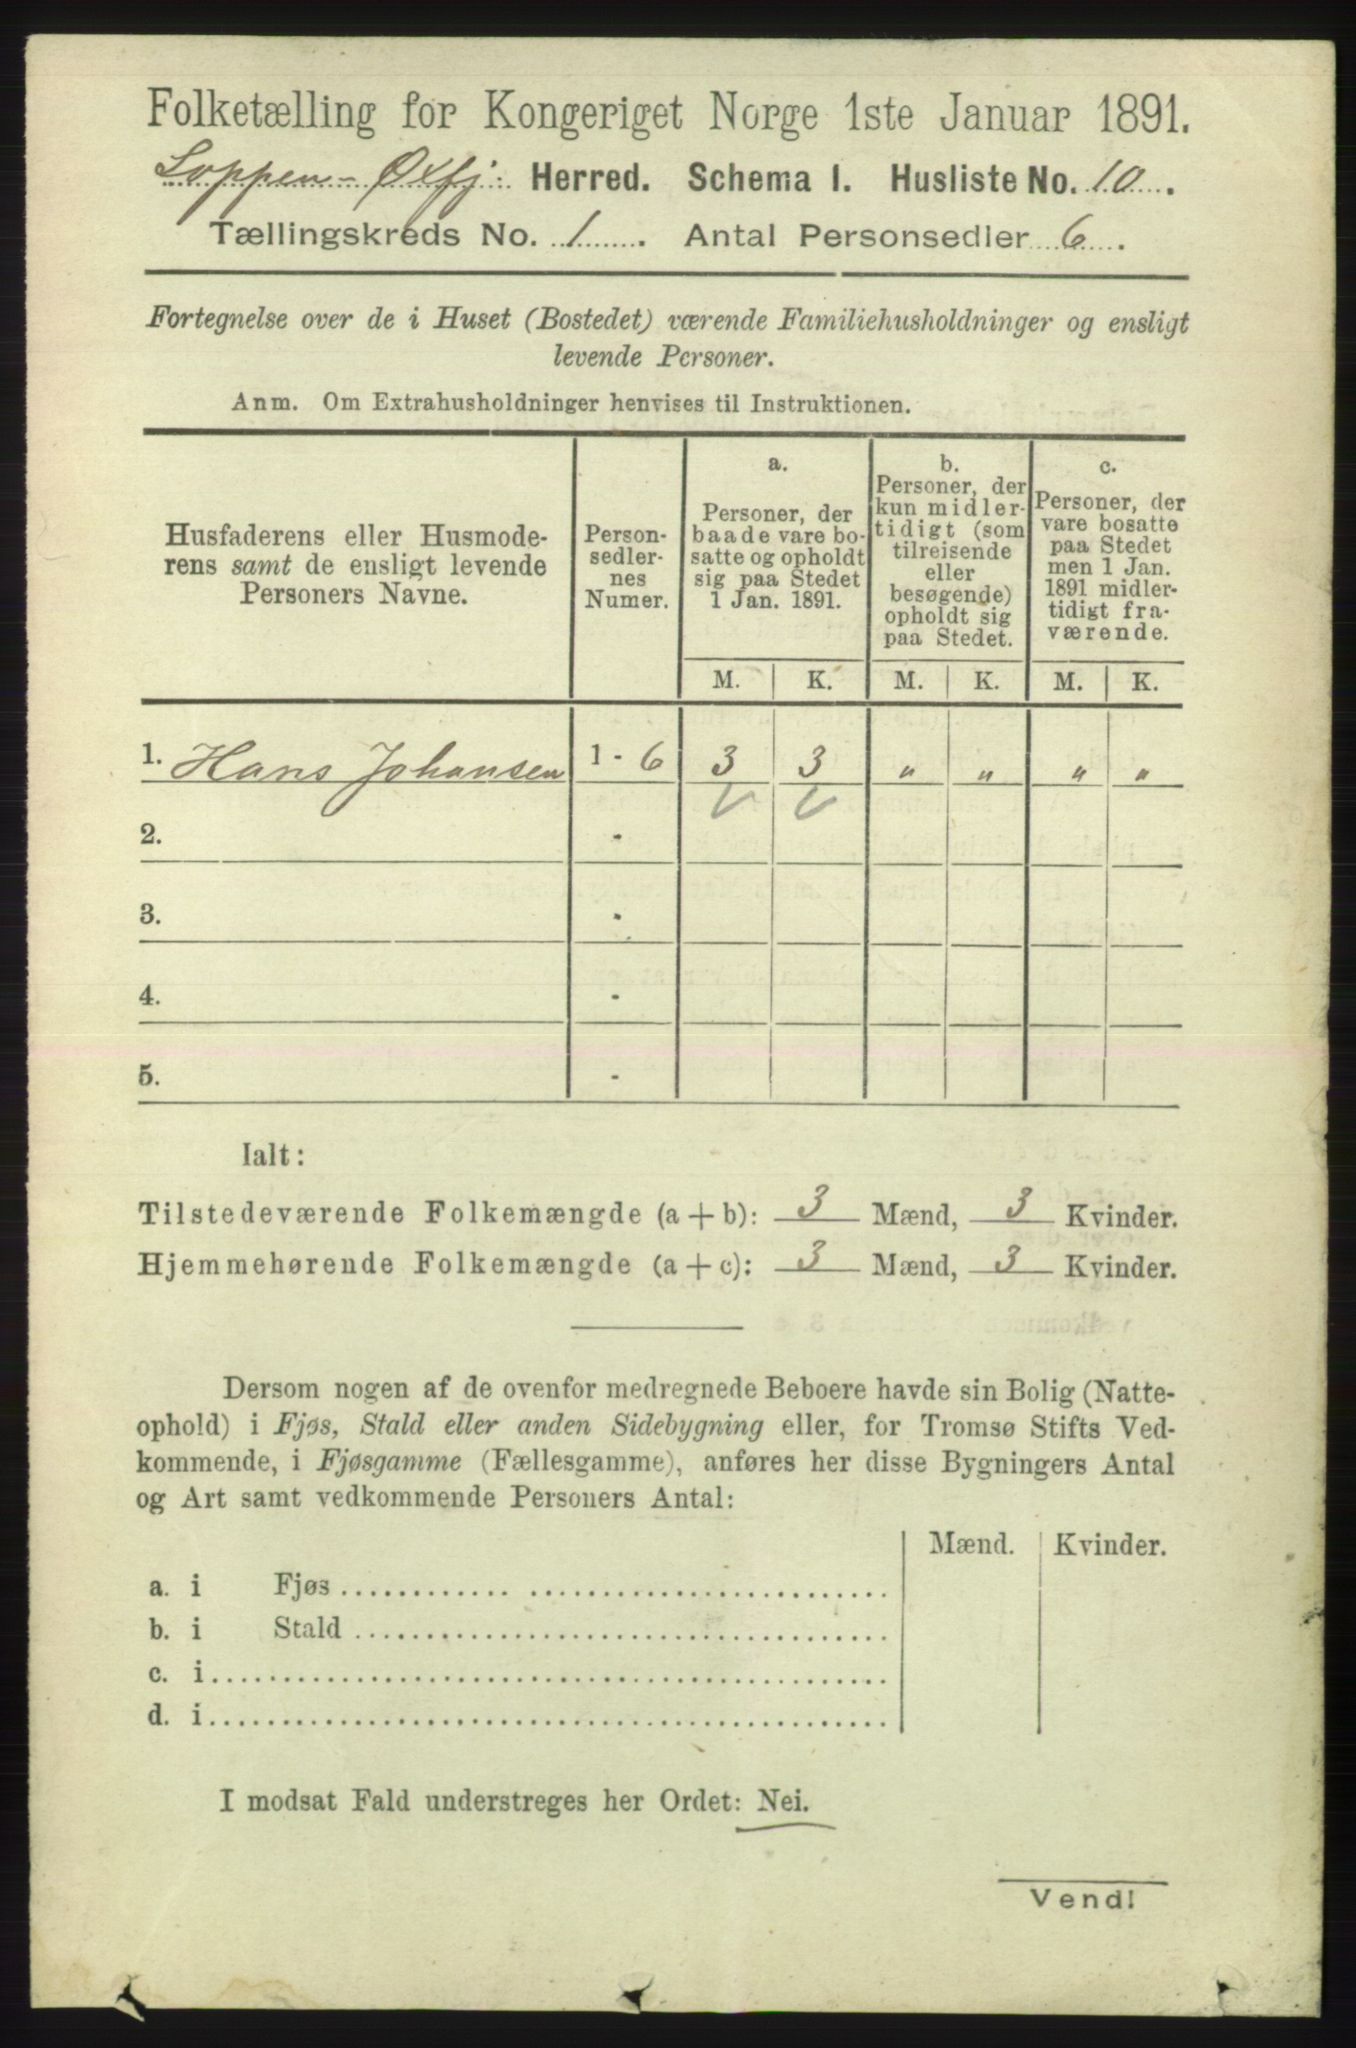 Folketælling for Kongeriget Norge 1ste Januar 1891.
Loppen - Øxfj: Herred. Schema I. Husliste No. 10.
Tællingskreds No. 1. Antal Personsedler 6.
Fortegnelse over de i Huset (Bostedet) værende Familiehusholdninger og ensligt
levende Personer.
Anm. Om Extrahusholdninger henvises til Instruktionen.
Husfaderens eller Husmode-
rens samt de ensligt levende
Personers Navne.
Person-
sedler-
nes
Numer.
a.
Personer, der
baade vare bo-
satte og opholdt
sig paa Stedet
1 Jan. 1891.
b.
Personer, der
kun midler-
tidigt (som
tilreisende
eller
besøgende)
opholdt sig
paa Stedet.
c.
Personer, der
vare bosatte
paa Stedet
men 1 Jan.
1891 midler-
tidigt fra-
værende.
M. K. M. K. M. K.
1. Hans Johansen 1 - 6 3 3 " " " "
2. -
3. -
4. -
5. -
Ialt:
Tilstedeværende Folkemængde (a + b): 3 Mænd, 3 Kvinder.
Hjemmehørende Folkemængde (a + c): 3 Mænd, 3 Kvinder.
Dersom nogen af de ovenfor medregnede Beboere havde sin Bolig (Natte-
ophold) i Fjøs, Stald eller anden Sidebygning eller, for Tromsø Stifts Ved-
kommende, i Fjøsgamme (Fællesgamme), anføres her disse Bygningers Antal
og Art samt vedkommende Personers Antal:
Mænd. Kvinder.
a. i Fjøs
b. i Stald
c. i
d. i
I modsat Fald understreges her Ordet: Nei.
Vend!